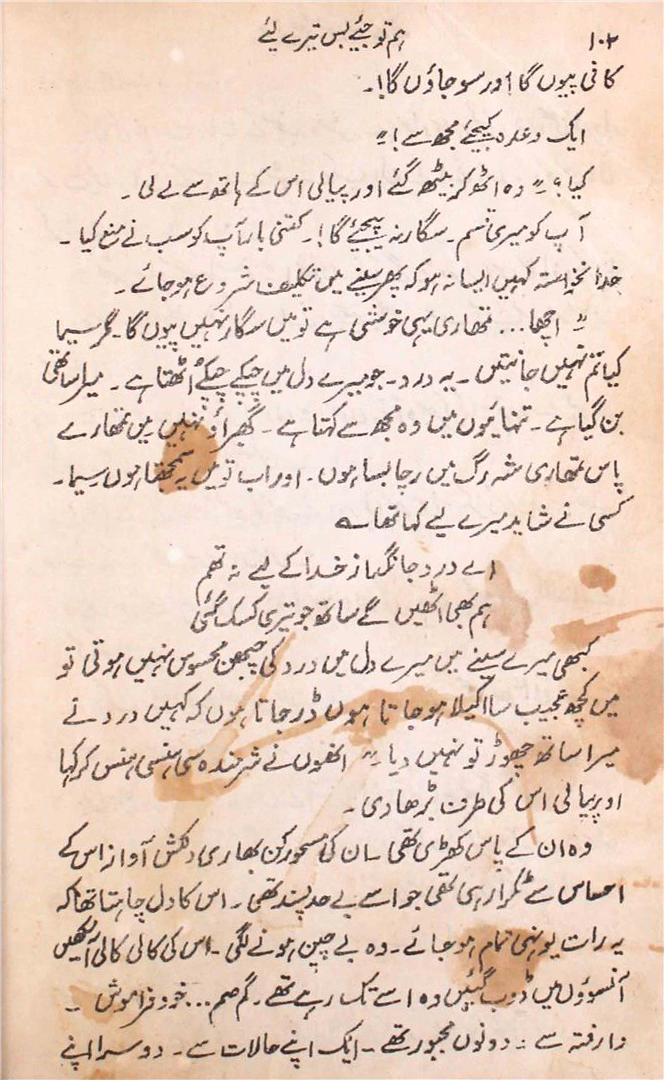 ۱۰۲
ہم تو جئے بس تیرے لئے
کافی پیوں گا اور سو جاؤں گا!۔
ایک وعدہ کیجئے مجھ سے!"
کیا؟" وہ اٹھ کر بیٹھ گئے اور پیالی اس کے ہاتھ سے لے لی۔
آپ کو میری قسم۔ سگار نہ پیجئے گا!۔ کتنی بار آپ کو سب نے منع کیا۔
خدانخواستہ کہیں ایسا نہ ہو کہ پھر سینے میں تکلیف شروع ہو جائے۔
" اچھا... تمھاری یہی خوشی ہے تو میں سگار نہیں پیوں گا۔ مگر سیما
کیا تم نہیں جانتیں۔ یہ درد۔ جو میرے دل میں چپکے چپکے اٹھتا ہے۔ میرا ساتھی
بن گیا ہے۔ تنہائیوں میں وہ مجھ سے کہتا ہے۔ گھبراؤ نہیں میں تمھارے
پاس تمھاری شہ رگ میں رچا بسا ہوں۔ اور اب تو میں یہ سمجھتا ہوں سیما۔
کسی نے شاید میرے لیے کہا تھا ؎
اے درد جانگداز خدا کے لیے نہ تھم
ہم بھی اٹھیں گے ساتھ جو تیری کسک گئی
کبھی میرے سینے میں میرے دل میں درد کی چبھن محسوس نہیں ہوتی تو
میں کچھ عجیب سا اکیلا ہو جاتا ہوں ڈر جاتا ہوں کہ کہیں درد نے
میرا ساتھ چھوڑ تو نہیں دیا۔" انھوں نے شرمندہ سی ہنسی ہنس کر کہا
اور پیالی اس کی طرف بڑھا دی۔
وہ ان کے پاس کھڑی تھی۔ ان کی مسحور کن بھاری دلکش آواز اس کے
احساس سے ٹکرا رہی تھی جو اسے بے حد پسند تھی۔ اس کا دل چاہتا تھا کہ
یہ رات یونہی تمام ہو جائے۔ وہ بے چین ہونے لگی۔ اس کی کالی کالی آنکھیں
آنسوؤں میں ڈوب گئیں وہ اسے تک رہے تھے۔ گم صم... خود فراموش۔
وارفتہ سے: دونوں مجبور تھے۔ ایک اپنے حالات سے۔ دوسرا اپنے